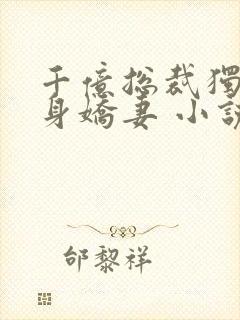 千億總裁獨
身嬌妻 小說
邰黎祥